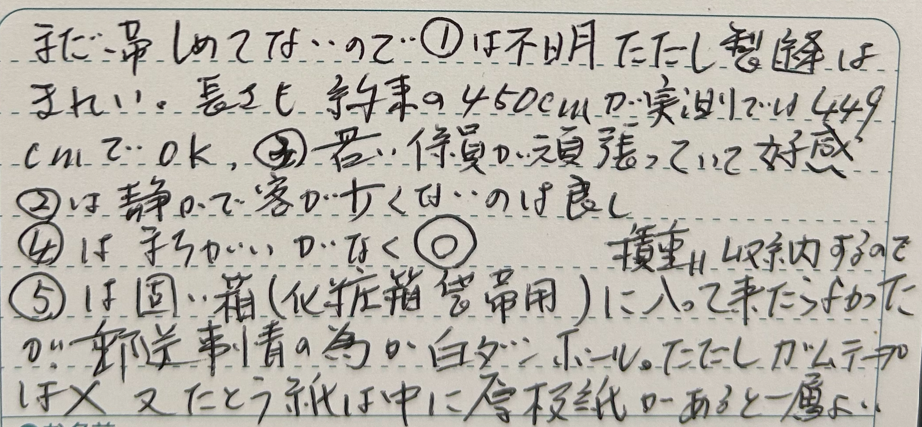 まだ帯しめてないので①は不明 ただし製縫は
きれい。長さも約束の450cmが実測では449
cmでOK、③若い係員が頑張っていて好感
②は静かで客が少くないのは良し
④はまちがいがなく◎ 積重\\収納するので
⑤は固い箱(化粧箱袋帯用)に入って来たらよかった
が郵送事情の為か白ダンボール。ただしガムテープ
は× 又たとう紙は中に厚板紙があると一層よい